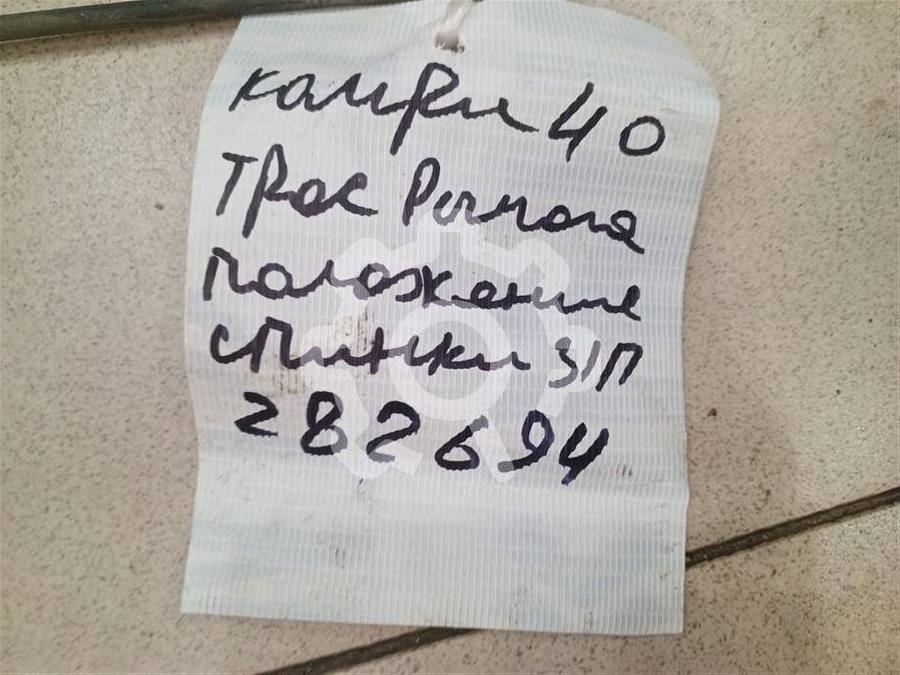 Камри 40
Трос
положение
спинки З/П
282694